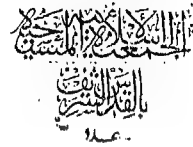 الجمعية الاسلامية المسيحية
بالقدس الشريف
عدد